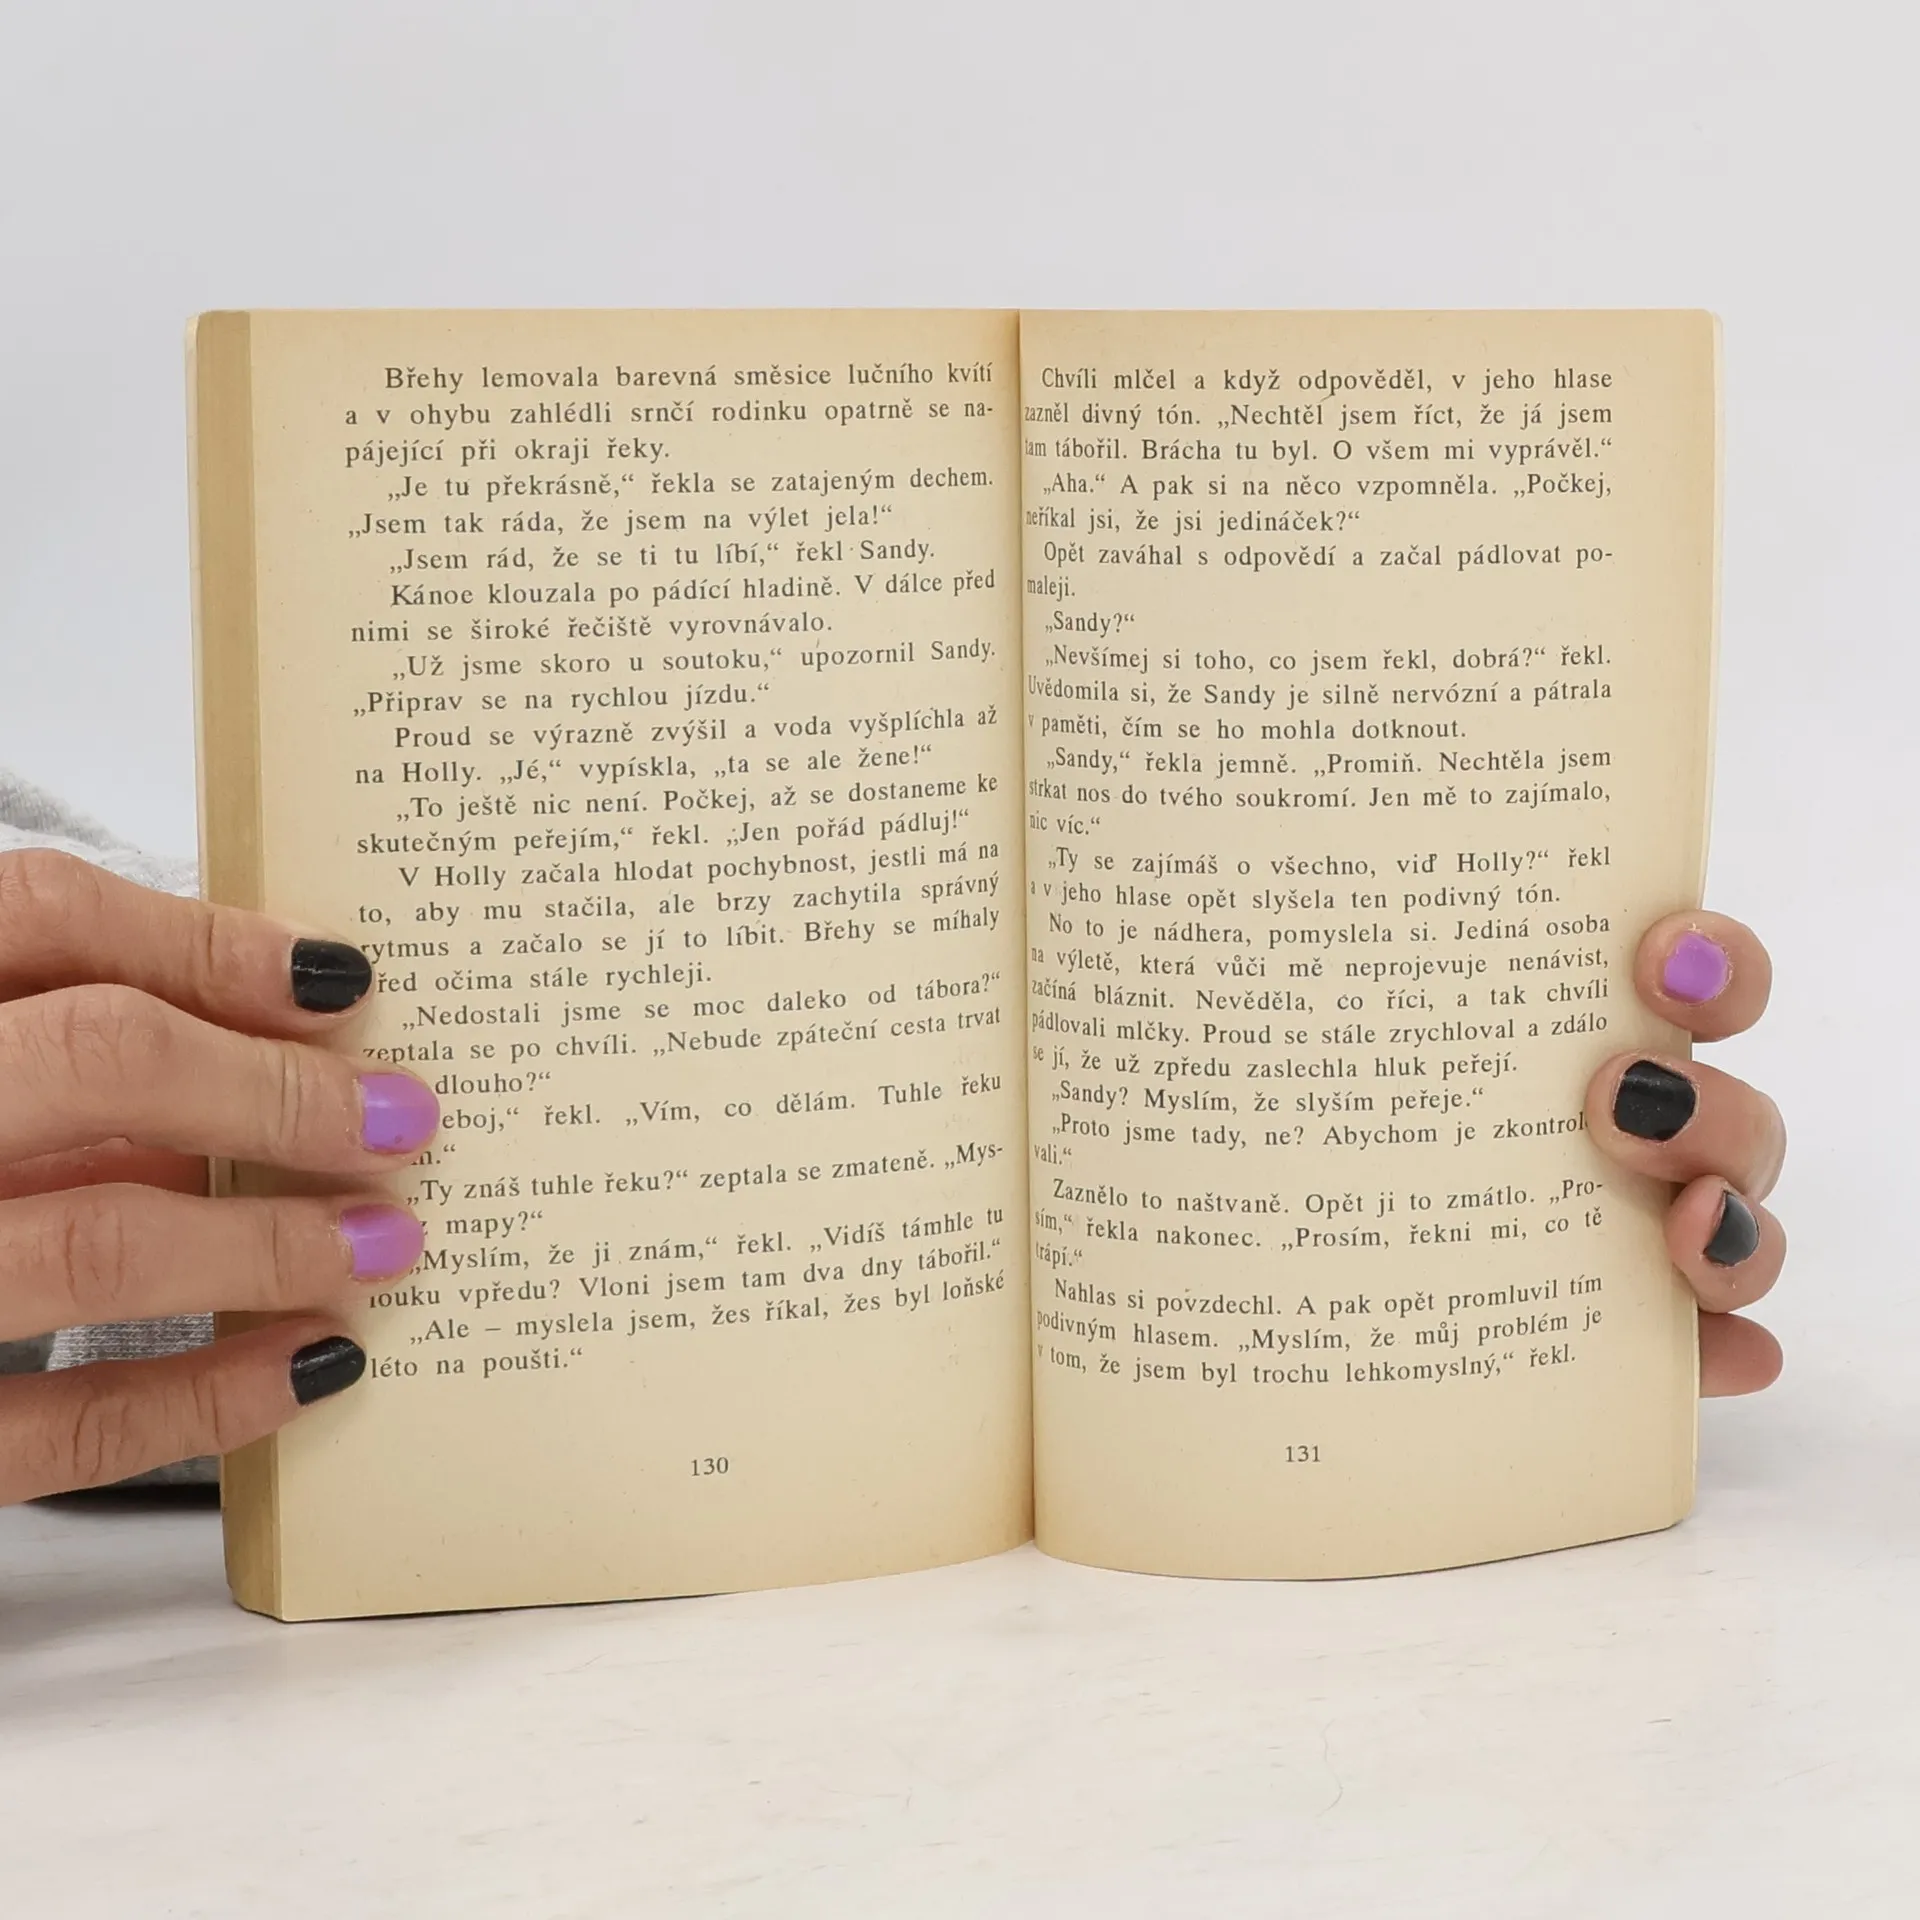 Břehy lemovala barevná směsice lučního kvítí
a v ohybu zahlédli srnčí rodinku opatrně se na-
pájející při okraji řeky.
„Je tu překrásně,“ řekla se zatajeným dechem.
„Jsem tak ráda, že jsem na výlet jela!“
„Jsem rád, že se ti tu líbí,“ řekl Sandy.
Kánoe klouzala po pádící hladině. V dálce před
nimi se široké řečiště vyrovnávalo.
„Už jsme skoro u soutoku,“ upozornil Sandy.
„Připrav se na rychlou jízdu.“
Proud se výrazně zvýšil a voda vyšplíchla až
na Holly. „Jé,“ vypískla, „ta se ale žene!“
„To ještě nic není. Počkej, až se dostaneme ke
skutečným peřejím,“ řekl. „Jen pořád pádluj!“
V Holly začala hlodat pochybnost, jestli má na
to, aby mu stačila, ale brzy zachytila správný
rytmus a začalo se jí to líbit. Břehy se míhaly
řed očima stále rychleji.
„Nedostali jsme se moc daleko od tábora?“
zeptala se po chvíli. „Nebude zpáteční cesta trvat
dlouho?“
eboj,“ řekl. „Vím, co dělám. Tuhle řeku
m.“
„Ty znáš tuhle řeku?“ zeptala se zmateně. „Mys-
z mapy?“
„Myslím, že ji znám,“ řekl. „Vidíš támhle tu
louku vpředu? Vloni jsem tam dva dny tábořil.“
„Ale – myslela jsem, žes říkal, žes byl loňské
léto na poušti.“
130
Chvíli mlčel a když odpověděl, v jeho hlase
zazněl divný tón. „Nechtěl jsem říct, že já jsem
tam tábořil. Brácha tu byl. O všem mi vyprávěl.“
„Aha.“ A pak si na něco vzpomněla. „Počkej,
neříkal jsi, že jsi jedináček?“
Opět zaváhal s odpovědí a začal pádlovat po-
maleji.
„Sandy?“
„Nevšímej si toho, co jsem řekl, dobrá?“ řekl.
Uvědomila si, že Sandy je silně nervózní a pátrala
v paměti, čím se ho mohla dotknout.
„Sandy,“ řekla jemně. „Promiň. Nechtěla jsem
strkat nos do tvého soukromí. Jen mě to zajímalo,
nic víc.“
„Ty se zajímáš o všechno, viď Holly?“ řekl
a v jeho hlase opět slyšela ten podivný tón.
No to je nádhera, pomyslela si. Jediná osoba
na výletě, která vůči mě neprojevuje nenávist,
začíná bláznit. Nevěděla, co říci, a tak chvíli
pádlovali mlčky. Proud se stále zrychloval a zdálo
se jí, že už zpředu zaslechla hluk peřejí.
„Sandy? Myslím, že slyším peřeje.“
„Proto jsme tady, ne? Abychom je zkontrolo
vali.“
Zaznělo to naštvaně. Opět ji to zmátlo. „Pro-
sím,“ řekla nakonec. „Prosím, řekni mi, co tě
trápí.“
Nahlas si povzdechl. A pak opět promluvil tím
podivným hlasem. „Myslím, že můj problém je
v tom, že jsem byl trochu lehkomyslný,“ řekl.
131